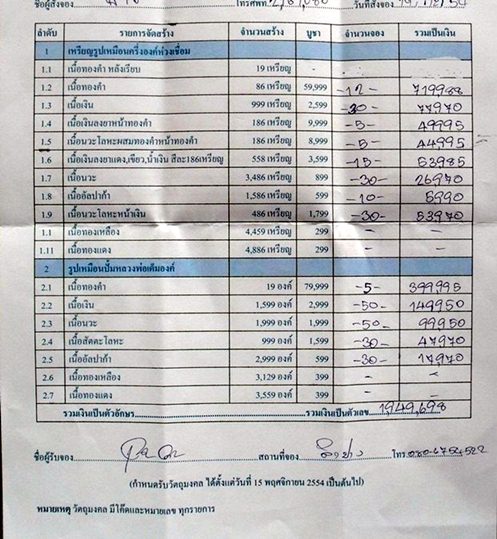 ชื่อผู้สั่งจอง โทรศัพท์ วันที่สั่งจอง
ลำดับ รายการจัดสร้าง จำนวนสร้าง บูชา จำนวนจอง รวมเป็นเงิน
1 เหรียญรูปเหมือนครึ่งองค์ห่วงเชื่อม
1.1 เนื้อทองคำ หลังเรียบ 19 เหรียญ -
1.2 เนื้อทองคำ 86 เหรียญ 59,999 -12- 719988
1.3 เนื้อเงิน 999 เหรียญ 2,599 -30- 77970
1.4 เนื้อเงินลงยาหน้าทองคำ 186 เหรียญ 9,999 -5- 49995
1.5 เนื้อนวะโลหะผสมทองคำหน้าทองคำ 186 เหรียญ 8,999 -5- 44995
1.6 เนื้อเงินลงยาแดง,เขียว,น้ำเงิน สีละ186เหรียญ 558 เหรียญ 3,599 -15- 53985
1.7 เนื้อนวะ 3,486 เหรียญ 899 -30- 26970
1.8 เนื้ออัลปาก้า 1,586 เหรียญ 599 -10- 5990
1.9 เนื้อนวะโลหะหน้าเงิน 486 เหรียญ 1,799 -30- 53970
1.1 เนื้อทองเหลือง 4,459 เหรียญ 299 - -
1.11 เนื้อทองแดง 4,886 เหรียญ 299 - -
2 รูปเหมือนปั๊มหลวงพ่อเต็มองค์
2.1 เนื้อทองคำ 19 องค์ 79,999 -5- 399,995
2.2 เนื้อเงิน 1,599 องค์ 2,999 -50- 149950
2.3 เนื้อนวะ 1,999 องค์ 1,999 -50- 99950
2.4 เนื้อสัตตะโลหะ 999 องค์ 1,599 -30- 47970
2.5 เนื้ออัลปาก้า 2,999 องค์ 599 -30- 17970
2.6 เนื้อทองเหลือง 3,129 องค์ 399 - -
2.7 เนื้อทองแดง 3,559 องค์ 399 - -
รวมเงินเป็นตัวอักษร รวมเงินเป็นตัวเลข 1,949,698
ชื่อผู้รับจอง สถานที่จอง โทร.
(กำหนดรับวัตถุมงคล ได้ตั้งแต่วันที่ 15 พฤศจิกายน 2554 เป็นต้นไป)
หมายเหตุ วัตถุมงคล มีโค๊ดและหมายเลข ทุกรายการ